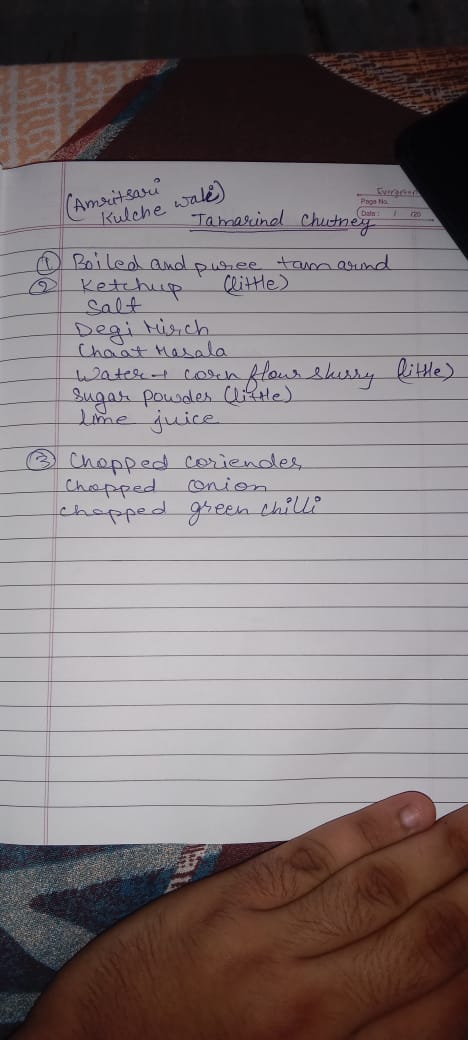 Evergreen
Page No.
Date : / /20
(Amritsari
Kulche wale)
Tamarind Chutney
① Boiled and puree tamarind
② Ketchup (little)
Salt
Degi Mirch
Chaat Masala
Water + corn flour slurry (little)
Sugar powder (little)
lime juice
③ Chopped coriender
Chopped onion
chopped green chilli